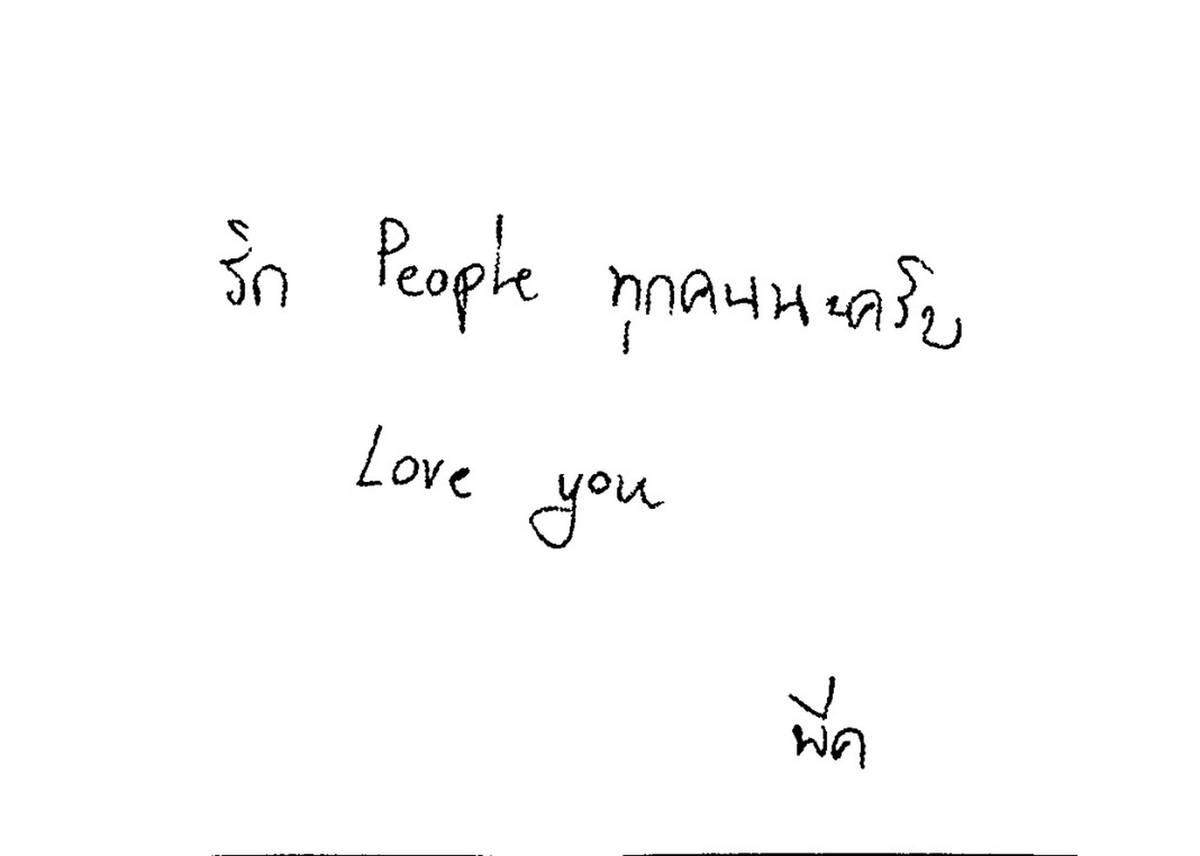 รัก People ทุกคนนะครับ
Love you
พีค